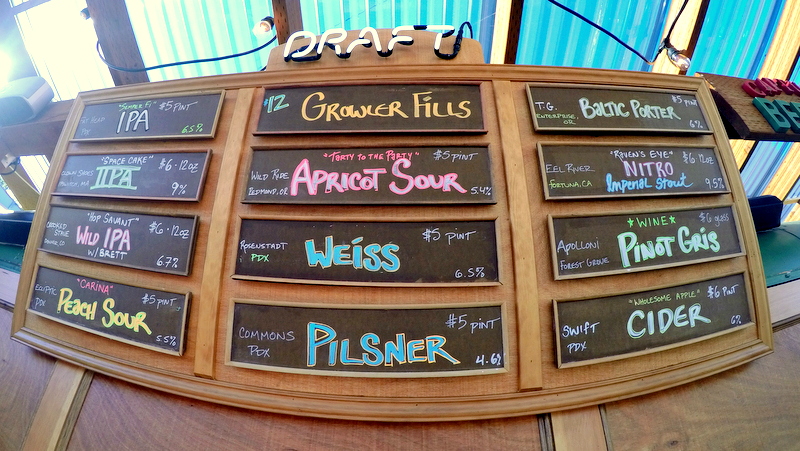 DRAFT
"SEMPER FI" $5 PINT
IPA
PDX
6.5%
"SPACE CAKE" $6 · 12oz
IIPA
9%
"HOP SAVANT" $6 · 12oz
CROOKED STAVE
DENVER, CO
WILD IPA
W/ BRETT
6.7%
"CARINA" $5 PINT
ECLIPTIC
PDX
PEACH SOUR
5.5%
$12 GROWLER FILLS
"TARTY TO THE PARTY" $5 PINT
WILD RIDE
REDMOND, OR
APRICOT SOUR
5.4%
$5 PINT
ROSENSTADT
PDX
WEISS
6.5%
$5 PINT
COMMONS
PDX
PILSNER
4.6%
$5 PINT
T.G.
ENTERPRISE, OR
BALTIC PORTER
"RAVEN'S EYE" $6 12oz
EEL RIVER
FORTUNA, CA
NITRO
Imperial Stout
9.5%
★ WINE ★ $6 glass
APOLLONI
FOREST GROVE
PINOT GRIS
"WHOLESOME APPLE" $6 PINT
SWIFT
PDX
CIDER
6%